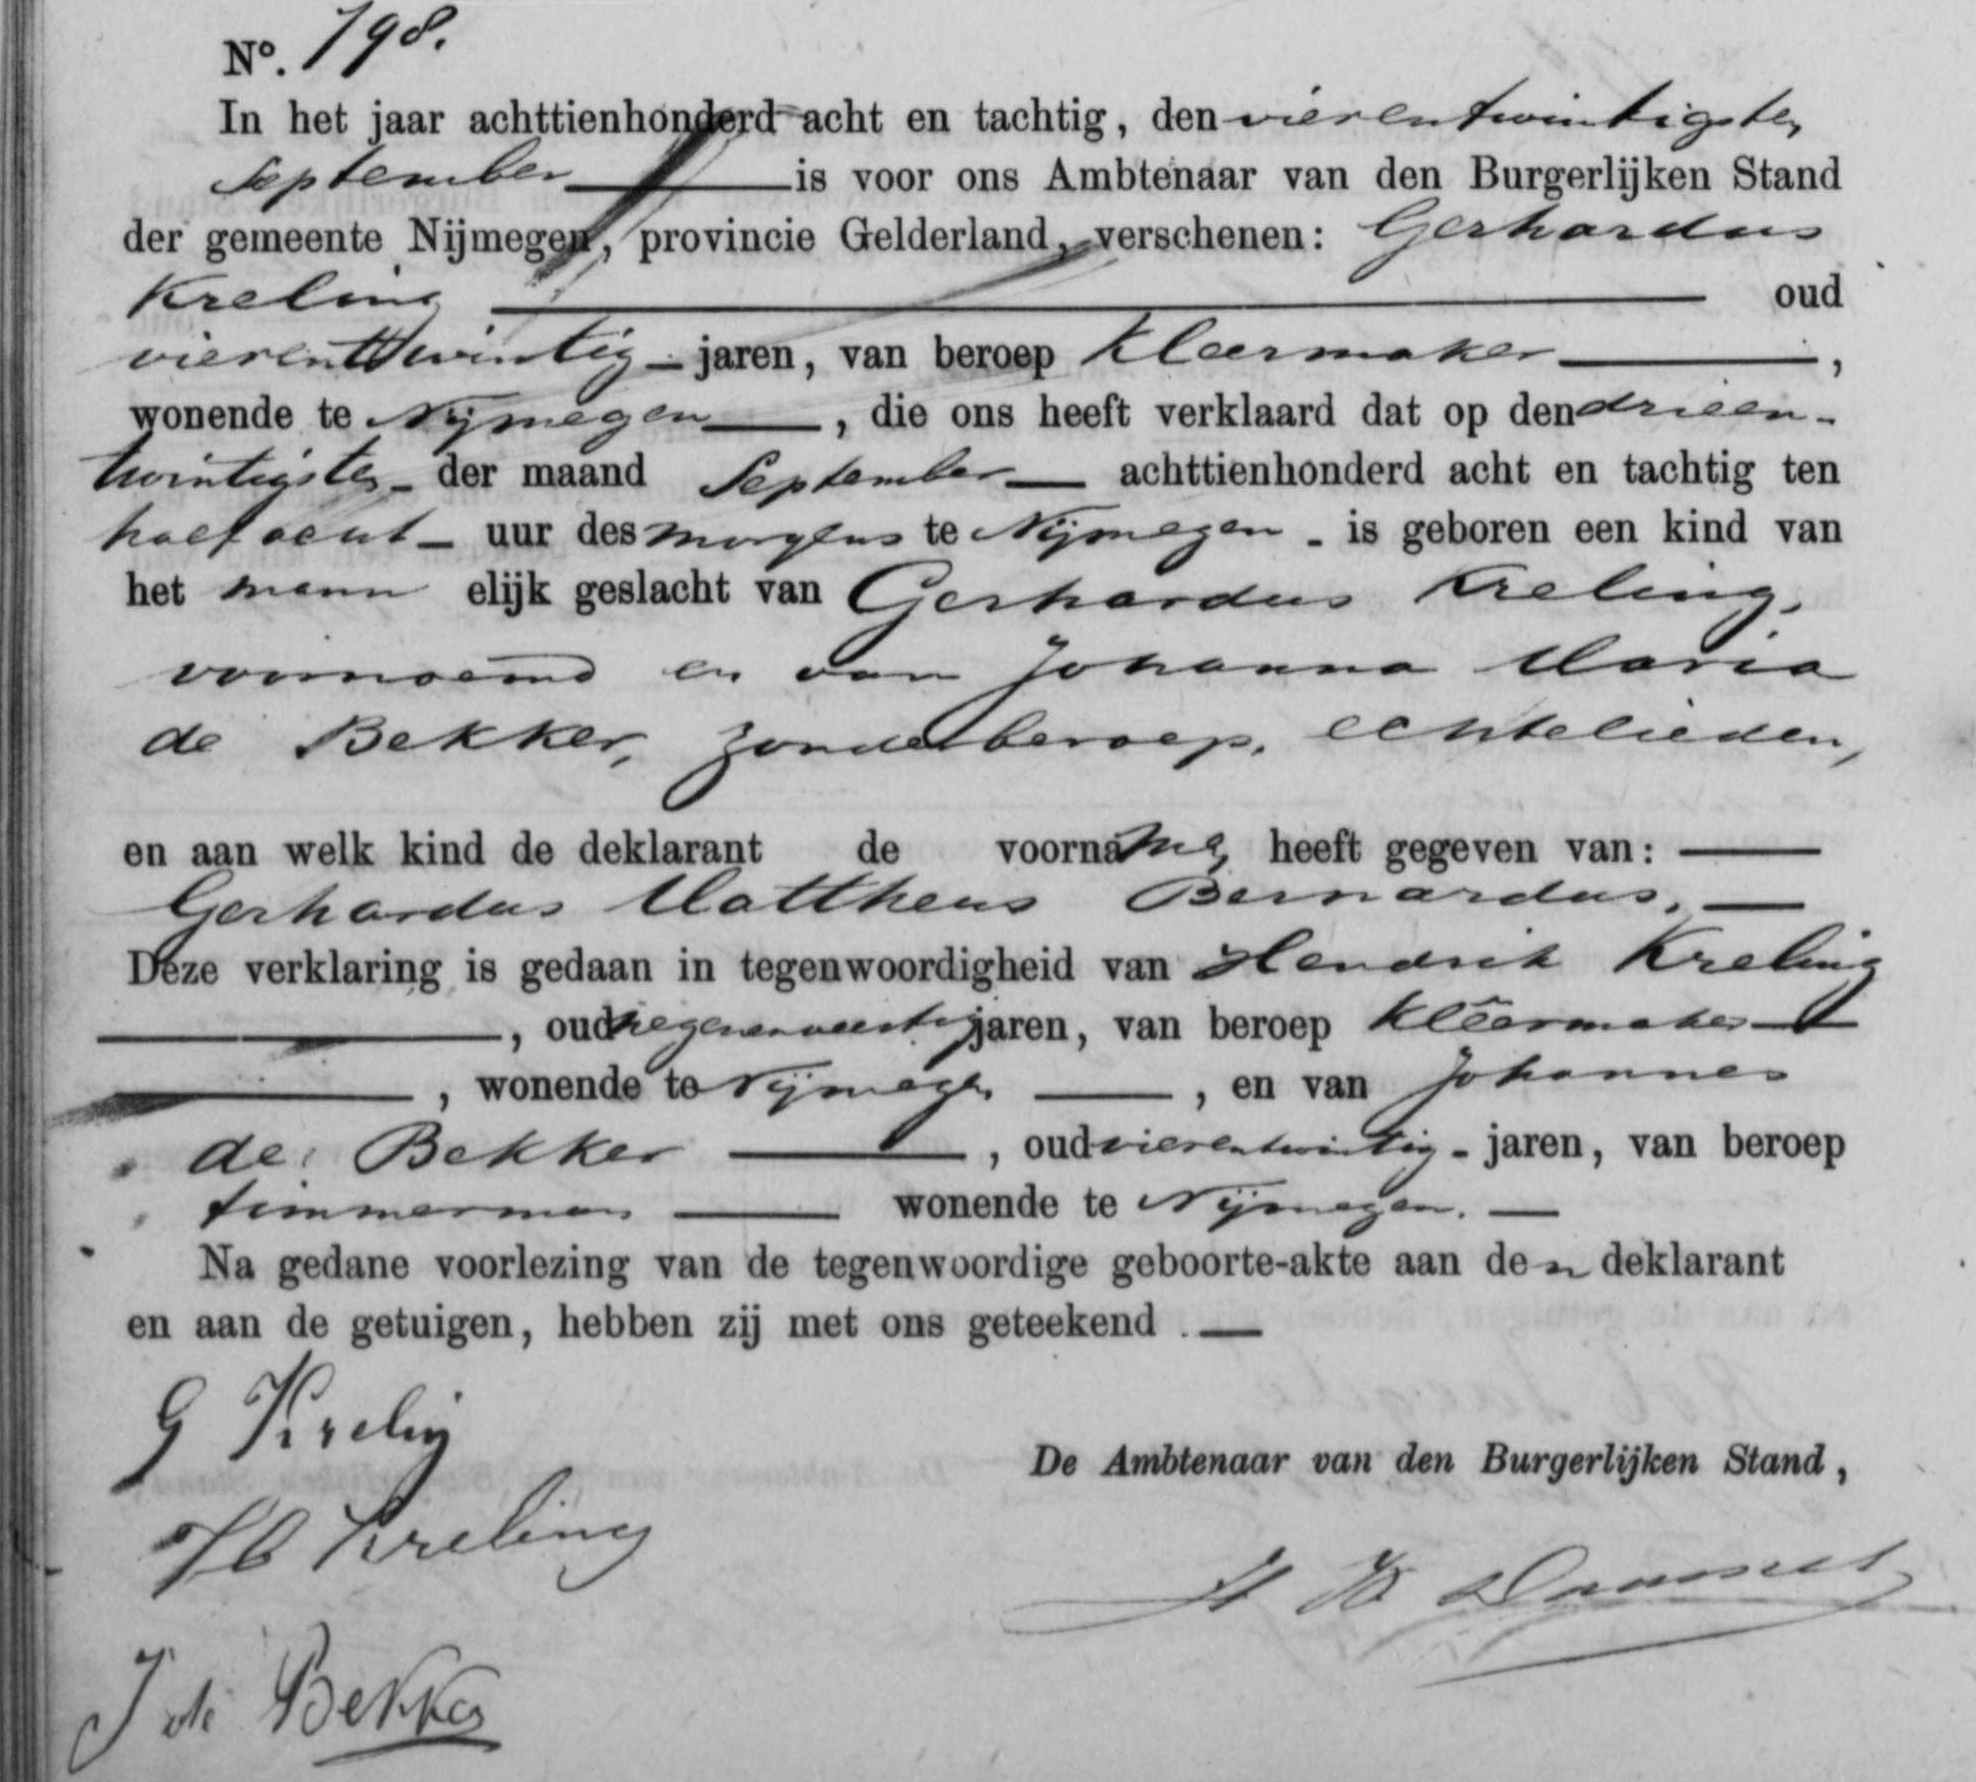 No. 798.
In het jaar achttienhonderd acht en tachtig, den vierentwintigsten
September is voor ons Ambtenaar van den Burgerlijken Stand
der gemeente Nijmegen, provincie Gelderland, verschenen: Gerhardus
Kreling oud
vierentwintig jaren, van beroep kleermaker,
wonende te Nijmegen, die ons heeft verklaard dat op den drieen-
twintigsten der maand September achttienhonderd acht en tachtig ten
half acht uur des morgens te Nijmegen is geboren een kind van
het mann elijk geslacht van Gerhardus Kreling,
voornoemd en van Johanna Maria
de Bekker, zonder beroep, echtelieden,
en aan welk kind de deklarant de voorname heeft gegeven van:
Gerhardus Mattheus Bernardus,
Deze verklaring is gedaan in tegenwoordigheid van Hendrik Kreling
, oud negenenveertig jaren, van beroep kleermaker
, wonende te Nijmegen, en van Johannes
de Bekker, oud vierentwintig jaren, van beroep
timmerman wonende te Nijmegen.
Na gedane voorlezing van de tegenwoordige geboorte-akte aan den deklarant
en aan de getuigen, hebben zij met ons geteekend.
G Kreling
De Ambtenaar van den Burgerlijken Stand,
H Kreling
J de Bekker